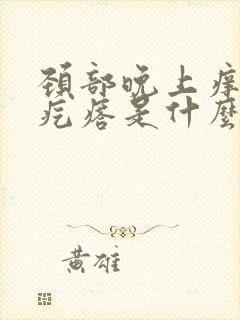 頸部晚上痒
疙瘩是什麼
黃雄